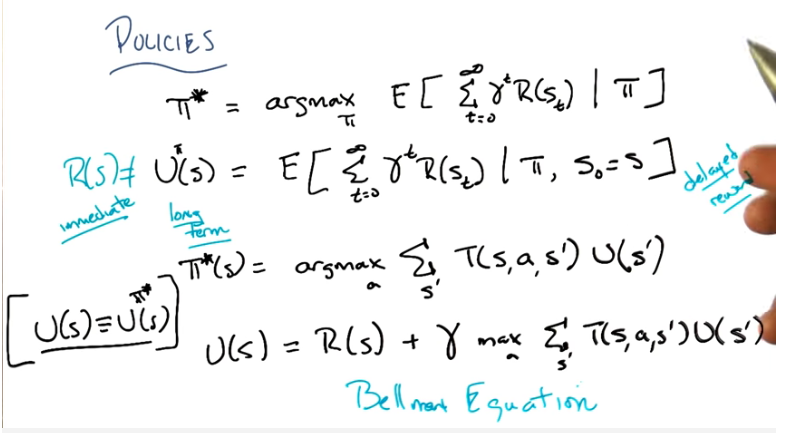 POLICIES
π* = argmax_π E[ Σ_{t=0}^{∞} γ^t R(s_t) | π ]
R(s) ≠ U^π(s) = E[ Σ_{t=0}^{∞} γ^t R(s_t) | π, s_0 = s ]
immediate long term delayed reward
π*(s) = argmax_a Σ_{s'} T(s, a, s') U(s')
[ U(s) ≡ U^{π*}(s) ]
U(s) = R(s) + γ max_a Σ_{s'} T(s, a, s') U(s')
Bellman Equation